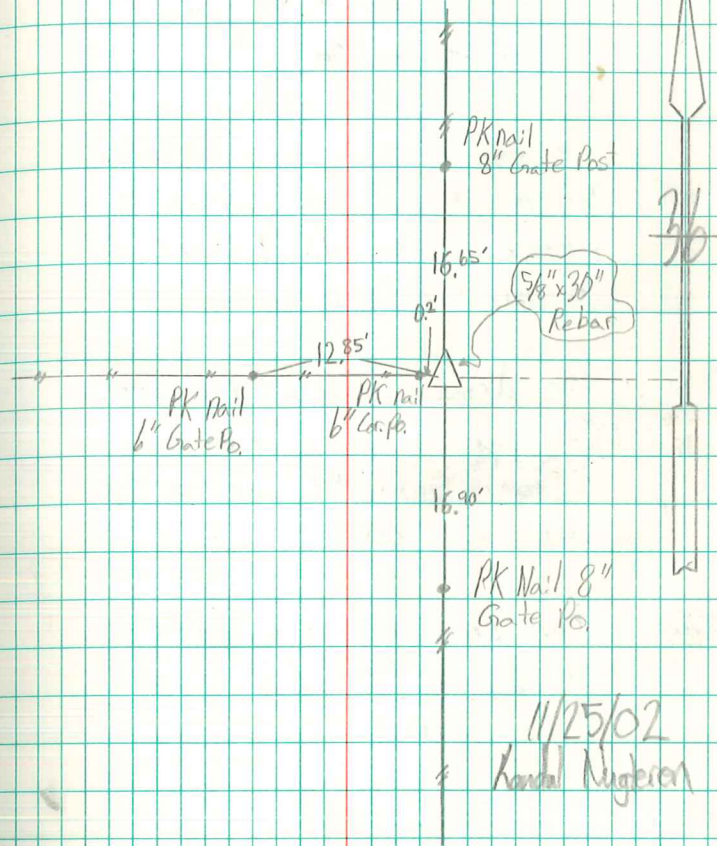 PK nail
8" Gate Post
36
16.65'
5/8" x 30"
Rebar
0.2'
12.85'
PK nail
6" Gate Po.
PK nail
6" Cor. po.
16.90'
PK Nail 8"
Gate Po.
11/25/02